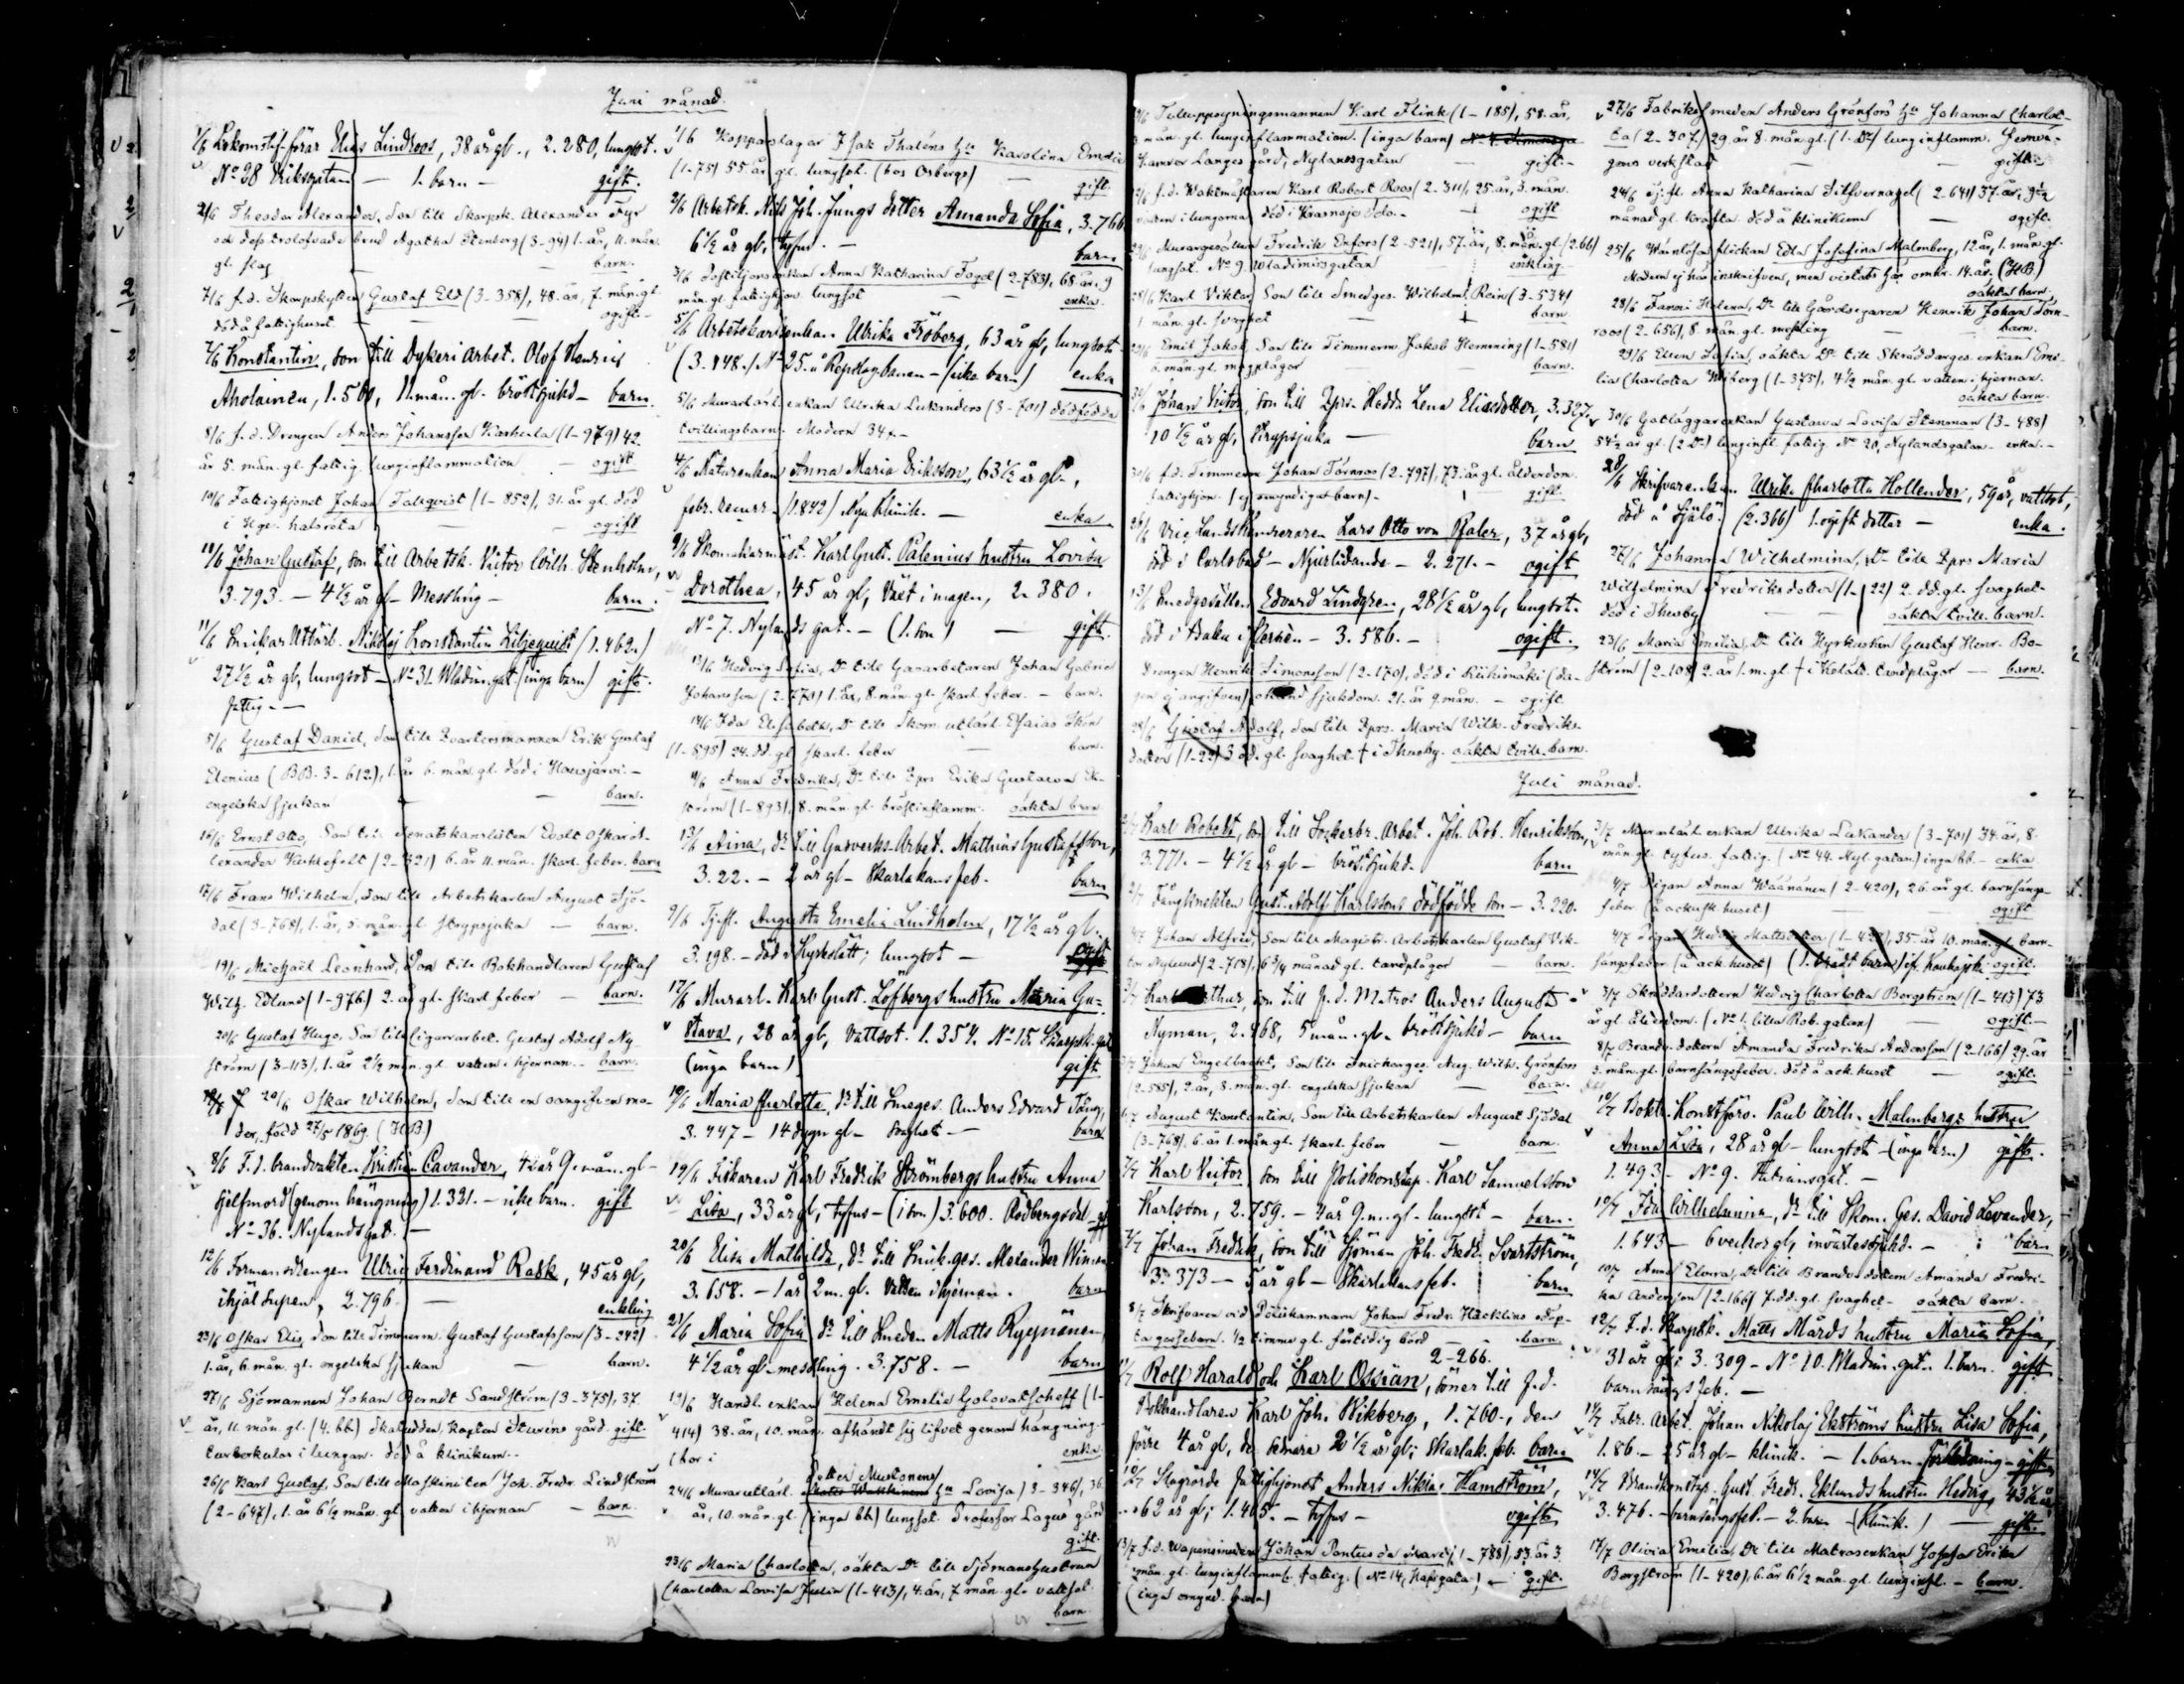 Juni månad.
1/6 Lokomotif-förar Elias Lindroos, 38 år gl., 2.280, lungsot.
No 28 Eriksgatan — 1. barn — gift.
2/6 Theodor Alexander, Son till Skarpsk. Alexander Fyr
och dess trolofvade brud Agatha Stenberg (3-94) 1. år, 11. mån.
gl. slag — barn.
7/6 f.d. Skarpskytten Gustaf Eld (3-358), 48. år, 7. mån. gl.
död å fattighuset. — ogift.
7/6 Konstantin, son till Dykeri arbet. Olof Henrik
Aholainen, 1.560, 11 mån. gl. bröstsjukd — barn.
8/6 f.d. Drengen Anders Johansson Karhula (1-979) 42.
år 5. mån. gl. fattig. lunginflammation — ogift
10/6 Fattighjonet Johan Talqvist (1-852), 31. år gl. död
i — ogift
10/6 Johan Gustaf, son till Arbetsk. Victor Wilh. Stenholm,
3.793. — 4 1/2 år gl — Messling — barn.
11/6 Snickar Utlärl. Nikolaj Konstantin Liljequist (1.462.)
27 1/2 år gl, lungsot — No 31. Wladim. gat. (inga barn) gift.
fattig. —
5/6 Gustaf Daniel, Son till Qvartersmannen Erik Gustaf
Elenius (BB. 3-612), 1. år 6. mån. gl. död i Hausjärvi. —
engelska sjukan — barn.
16/6 Ernst Otto, Son till Senatskanslisten Evolt Oskar A-
lexander (2-321) 6. år 11. mån. skarl. feber. barn
17/6 Frans Wilhelm, Son till Arbetskarlen August Sjö-
dal (3-768), 1. år, 5. mån. gl. strypsjuka — barn.
19/6 Michaël Leonhard, Son till Bokhandlaren Gustaf
Wilh. Edlund (1-976) 2. år gl. skarl. feber — barn.
20/6 Gustaf Hugo, Son till Cigarrarbet. Gustaf Adolf Ny-
ström (3-113), 1. år 2 1/2 mån. gl. vatten i hjernan. — barn.
20/6 Oskar Wilhelm, Son till en oangifven mo-
der, född 27/5 1869. (HB)
8/6 F.d. brandvakten Kristian Cavander, 42 år 9. mån. gl —
sjelfmord (genom hängning) 1.331. — icke barn. gift
No 36. Nylandsgat. —
12/6 Formansdrengen Ulric Ferdinand Rask, 45 år gl,
ihjäl supen, 2.796. — enkling
23/6 Oskar Elis, Son till Timmerm. Gustaf Gustafsson (3-242)
1. år, 6. mån. gl. engelska sjukan — barn.
27/6 Sjömannen Johan Berndt Sandström (3-375), 37.
år, 11. mån. gl. (4. bb.) Skatudden, Kapten Sturéns gård. gift.
tuberkular i lungan. död å klinikum. —
26/6 Karl Gustaf, Son till Maskinisten Joh. Fredr. Lindström
(2-647), 1. år 6 1/2 mån. gl. vatten i hjernan — barn.
1/6 Kopparslagar Isak Thaléns hu Karolina Emelie
(1-75) 55. år gl. lungsot. (hos Osbergs) — gift
2/6 Arbetsk. Nils Joh. Jungs dotter Amanda Sofia, 3.766
6 1/2 år gl, tyfus. — barn
3/6 enkan Anna Katharina Fogel (2-783), 68 år, 9
mån. gl. fattighjon lungsot — enka.
5/6 Arbetskarlsenkan Ulrika Fröberg, 63 år gl, lungsot —
(3.148.) No 25. å Repslagbanan — (icke barn) enka
5/6 Murarlärl. enkan Ulrika Lukanders (3-701) dödfödda
tvillingsbarn. Modern 34 år —
4/6 enkan Anna Maria Eriksson, 63 1/2 år gl.,
febr. recurr. (1.842) Nya Klinik. — enka
9/6 Skomakarmäst. Karl Gust. Palenius hustru Lovisa
Dorothea, 45 år gl, Växt i magen, 2.380.
No 7. Nylands gat. — (1. son) — gift.
13/6 Hedvig Sofia, Dr till Gasarbetaren Johan Gabriel
Johansson (2-773) 1. år, 8. mån. gl. skarl. feber. — barn.
14/6 Ida Elisabeth, Dr till Skom. utlärl. Esaias Skön
(1-595) 24. dd. gl. skarl. feber — barn.
11/6 Anna Fredrika, Dr till Pigan Erika Gustava Ek-
ström (1-893), 8. mån. gl. bröstinflamm. oäkta barn.
13/6 Aina, dr till Gasverks-Arbet. Matthias Gustafsson,
3.22. — 2 år gl — Skarlakansfeb. barn
9/6 Tjfl. Augusta Emelia Lindholm, 17 1/2 år gl.,
3.198. — död i Kyrkslätt; lungsot — ogift
17/6 Murarl. Karl Gust. Löfbergs hustru Maria Gu-
stava, 28 år gl, vattsot. 1.354. No 15. Skarpsk. gat
(inga barn) gift
19/6 Maria Charlotta, dr till Smeges. Anders Edvard Tång,
3.447 — 14 dygn gl — svaghet — barn
19/6 Fiskaren Karl Fredrik Strömbergs hustru Anna
Lisa, 33 år gl, tyfus — (1 son) 3.600. Rödbergsdal — gift
20/6 Elisa Mathilda, dr till Snick. ges. Alexander
3.658. — 1 år 2 m. gl. Vatten i hjernan. barn
21/6 Maria Sofia, dr till Smeden Matts Ryynänen,
4 1/2 år gl. messling. 3.758. — barn
13/6 Handl. enkan Helena Emelie Golovatscheff (1-
414) 38. år, 10. mån. afhändt sig lifvet genom hängning —
(bor i — enka
dotter Mustonens
24/6 Murareutlärl. hu Lovisa) 3-346), 36.
år, 10. mån. gl. (inga bb) lungsot. Professor Lagus gård
gift.
23/6 Maria Charlotta, oäkta Dr till Sjömanshustrun
Charlotta Lovisa Julin (1-413), 4. år, 7 mån. gl. vattsot.
barn.
Tuluppsyningsmannen Karl Flink (1-185), 58. år,
3 mån. gl. lunginflammation. (inga barn)
Kamrer Langes gård, Nylandsgatan — gift —
f.d. Waktmästaren Karl Robert Roos (2-311), 25. år, 3. mån.
vatten i lungorna död i Krasnoje Selo. — ogift
Muraregesällen Fredrik Enfors (2-521), 57. år, 8. mån. gl. (2.66)
lungsot. No 9. Wladimirsgatan enkling
28/6 Karl Viktor, Son till Smedges. Wilhelm Rein (3-534)
1 mån. gl. svaghet — barn.
29/6 Emil Jakob, Son till Timmerm Jakob Hemming (1-581)
6. mån. gl. magplågor — barn.
Johan Victor, son till Pigan Hedda Lena Eliasdotter, 3.327.
10 1/2 år gl, Strypsjuka — barn
30/6 f.d. Timmerm Johan Törnroos (2-797), 73. år gl. ålderdom.
fattighjon. (ej omyndiga barn) — gift.
26/6 Vice Landskamreraren Lars Otto von Pfaler, 37 år gl,
död i Carlsbad — Njurlidande — 2.271. — ogift
13/6 Smedgesällen Edvard Lindgren, 28 1/2 år gl, lungsot.
död i Baku i Persien — 3.586. — ogift.
Drengen Henrik Simonsson (2-170), död i Riihimäki (da-
gen ej angifven) okänd sjukdom. 21. år 9. mån. — ogift.
28/6 Gustaf Adolf, Son till Pigan Maria Wilh. Fredriks-
dotter (1-22) 3 dd. gl. svaghet † i Thusby. oäkta tvill. barn.
27/6 Fabriksmeden Anders Grönfors hu Johanna Charlot-
ta (2-307) 29. år 8. mån. gl. (1. Dr) lunginflamm.
verkstad — gift.
24/6 Tj.fl. Anna Katharina Silfvernagel (2-641) 37. år, 9 1/2
månad gl. kräfta. död å klinikum — ogift.
25/6 Wärnlösa flickan Edla Josefina Malmberg, 12. år, 1. mån. gl.
Modern ej här inskrifven, men vistats här omkr. 14. år. (HB)
oäkta barn.
28/6 Fanni Helena, Dr till Gårdsegaren Henrik Johan Törn-
roos (2-656), 8. mån. gl. messling — barn.
29/6 Ellen Sofia, oäkta Dr till Skräddarges. enkan Eme-
lia Charlotta Wiberg (1-375), 4 1/2 mån. gl. vatten i hjernan.
oäkta barn.
30/6 Gatläggarenkan Gustava Lovisa Stenman (3-488)
54 1/2 år gl. (2 Dr) lunginfl. fattig. No 20, Nylandsgatan — enka. —
28/6 Skrifvare enkan Ulrika Charlotta Hollender, 59 år, vattsot,
död å Själö. (2.366) 1. ogift dotter — enka.
27/6 Johanna Wilhelmina, Dr till Pigan Maria
Wilhelmina Fredriksdotter (1-22) 2. dd. gl. svaghet —
död i Thusby — oäkta tvill. barn.
23/6 Maria Emilia, Dr till Hyrkusken Gustaf Henr. Bo-
ström (2-108) 2. år 1. m. gl. † i tandplågor — barn.
Juli månad.
Karl Robert, son till Sockerbr. Arbet. Joh. Rob. Henriksson,
3.771. — 4 1/2 år gl — bröstsjukd. — barn
2/7 Fånginspektorn Gust. Adolf Karlssons dödfödde son — 3.220.
4/7 Johan Alfred, Son till Magistr. Arbetskarlen Gustaf Vik-
tor Nylund (2-718), 6 3/4 månad gl. tandplågor — barn.
3/7 Karl Arthur, son till f.d. Matros Anders August
Nyman, 2.468, 5 mån. gl. bröstsjukd — barn
Johan Engelbrekt, Son till Snickarges. Aug. Wilh. Grönfors
(2-585), 2. år, 8. mån. gl. engelska sjukan — barn.
August Konstantin, Son till Arbetskarlen August Sjödal
(3-768), 6. år 1. mån. gl. skarl. feber — barn.
7/7 Karl Victor, son till Poliskonstap. Karl Samuelsson
Karlsson, 2.759. — 2 år 9. m. gl. — lungsot — barn.
7/7 Johan Fredrik, son till Sjöman Joh. Fredr. Svartström,
3.373 — 5 år gl — Skarlakansfeb. barn
8/7 Skrifvaren vid Poliskammarn Johan Fredr. Häcklins döp-
ta gossebarn. 1/2 timme gl. förtidig börd — barn.
2-266.
11/7 Rolf Harald och Karl Ossian, söner till f.d.
Bokhandlaren Karl Joh. Wikberg, 1.760., den
förre 4 år gl, de senare 2 1/2 år gl; Skarlak. feb. barn
10/7 Slagrörde Fattighjonet Anders Niklas Hamström,
62 år gl; 1.465. — Tyfus — ogift
13/7 f.d. Wapensmeden Johan Pontus de Maré, (1-788), 53. år 3.
mån. gl. lunginflamm. fattig. (No 14, gata) — gift.
(inga omynd. barn)
3/7 Murarlärl. enkan Ulrika Lukander (3-701) 34. år, 8.
mån. gl. tyfus. fattig. (No 44. Nyl. gatan) inga bb. — enka.
4/7 Pigan Anna Wäänänen (2-420), 26. år gl. barnsängs-
feber. (å ackush. huset) — ogift
4/7 Pigan Hedvig Mattsdotter (1-428), 35. år 10. mån. gl. barn-
sängsfeber. (å ack. huset) ogift.
3/7 Skräddardottern Hedvig Charlotta Borgström (1-413) 73
år gl. ålderdom. (No 1. lilla Rob. gatan) — ogift. —
8/7 Brandv. dottern Amanda Fredrika Andersson (2-166) 29. år
3. mån. gl. barnsängsfeber. död å ack. huset — ogift.
10/7 Bokh. Konstförv. Paul Wilh. Malmbergs hustru
Anna Lisa, 28 år gl — lungsot — (inga barn) gift.
1.493. — No 9. gat. —
10/7 Ida Wilhelmina, dr till Skom. Ges. David Levander,
1.643 — 6 veckor gl, invärtessjukd. — barn
10/7 Anna Elvira, Dr till Brandv. dottern Amanda Fredri-
ka Andersson (2-166) 7. dd. gl. svaghet — oäkta barn.
12/7 F.d. Skarpsk. Matts Mårds hustru Maria Sofia,
31 år gl; 3.309 — No 10. Wladim. gat. 1. barn. gift
barnsängsfeb. —
14/7 Fabr. Arbet. Johan Nikolaj Ekströms hustru Lisa Sofia,
1.86. — 25 år gl — klinik. — 1. barn. förblödning — gift
14/7 Brandkonstap. Gust. Fredr. Eklunds hustru Hedvig, 43 1/2 år,
3.476. — barnsängsfeb. — 2. barn (Klinik.) — gift.
17/7 Olivia Emilia, Dr till Matrosenkan Josefa Erika
Borgström (1-420), 6. år 6 1/2 mån. gl. lunginfl. — barn.